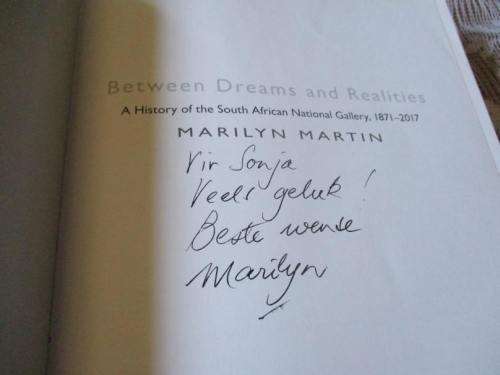 Between Dreams and Realities
A History of the South African National Gallery, 1871–2017
MARILYN MARTIN
Vir Sonja
Veels geluk!
Beste wense
Marilyn